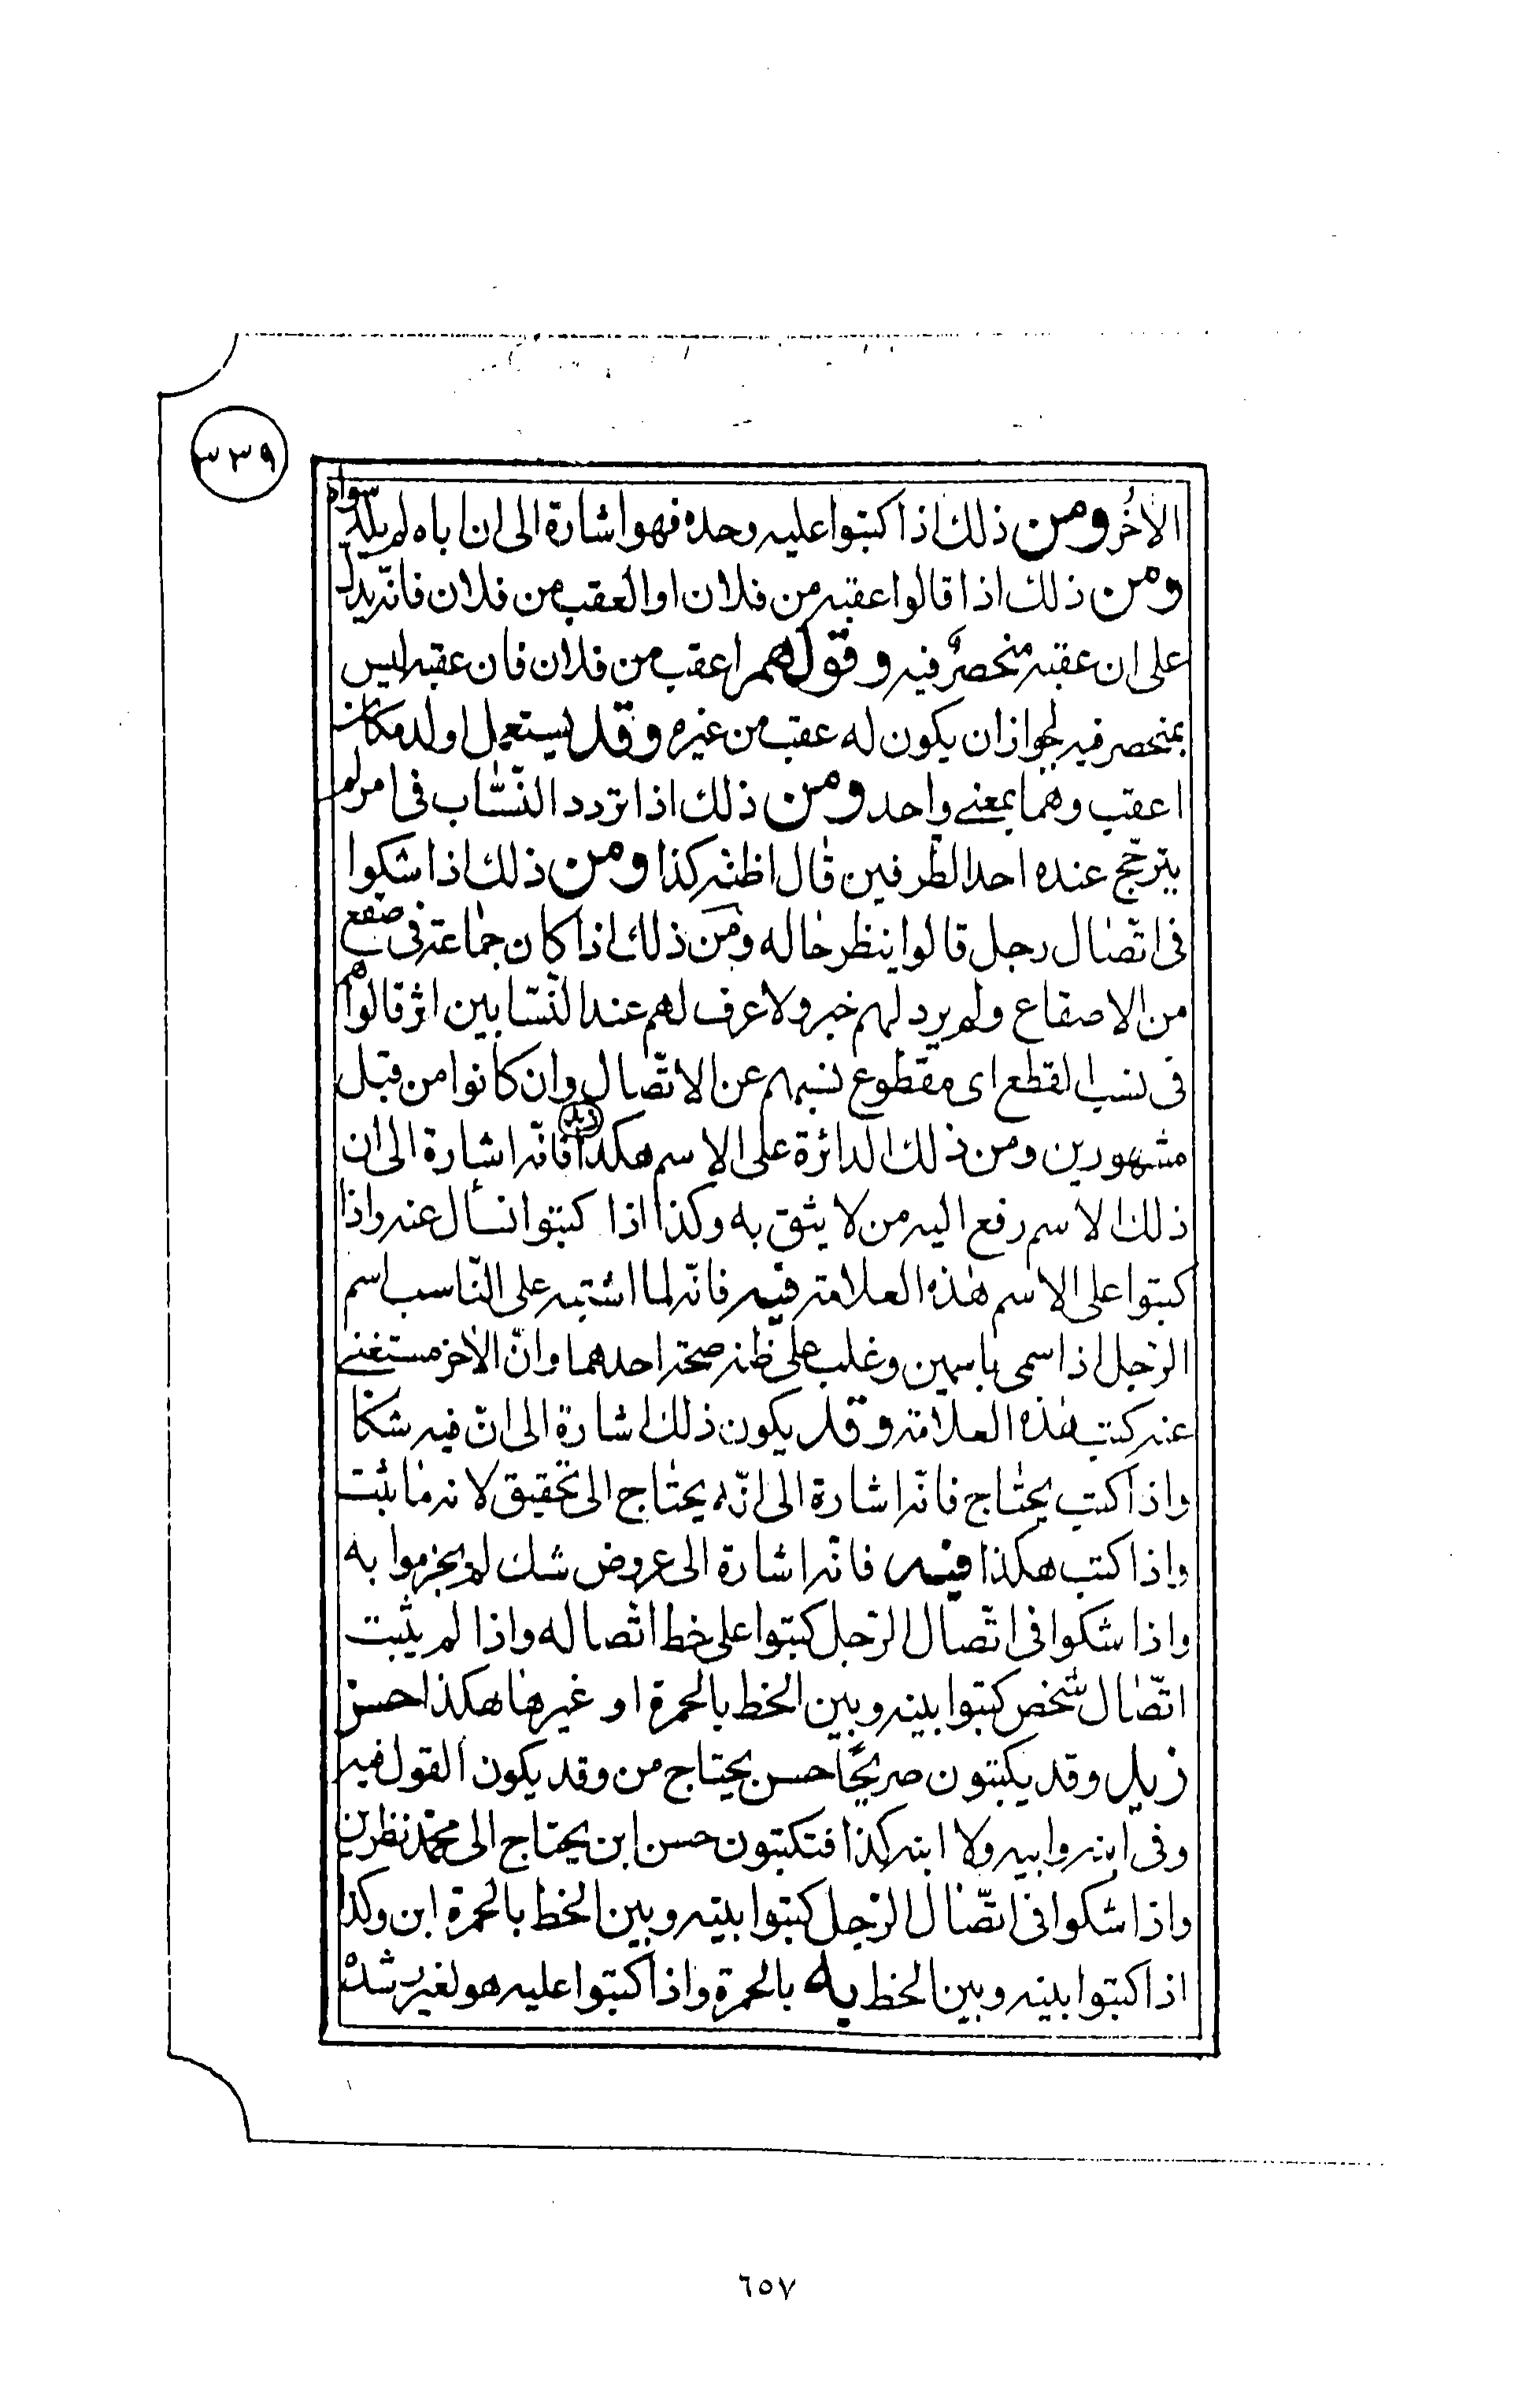 ٣٣٩
الاخر ومن ذلك اذا كتبوا عليه وحده فهو اشارة الى ان اباه لم يلد سواه
ومن ذلك اذا قالوا عقبه من فلان او العقب من فلان فانه يدل
على ان عقبه منحصر فيه وقولهم اعقب من فلان فان عقبه ليس
بمنحصر فيه لجواز ان يكون له عقب من غيره وقد يستعمل اولد مكان
اعقب وهما بمعنى واحد ومن ذلك اذا تردد النسّاب فى امر لم
يترجّح عنده احد الطرفين قال اظنه كذا ومن ذلك اذا شكوا
فى اتّصال رجل قالوا ينظر حاله ومن ذلك اذا كان جماعة فى صقع
من الاصقاع ولم يرد لهم خبر ولا عرف لهم عند النسّابين اثر قالوا هم
فى نسب القطع اى مقطوع نسبهم عن الاتّصال وان كانوا من قبل
مشهورين ومن ذلك الدائرة على الاسم هكذا زيد فانّه اشارة الى ان
ذلك الاسم رفع اليه من لا يثق به وكذا اذا كتبوا نسأل عنه واذا
كتبوا على الاسم هذه العلامة فيه فانّه لما اشتبه على النّاسب اسم
الرّجل اذا سمى باسمين وغلب على ظنه صحة احدهما وانّ الاخر مستغنى
عنه كتب هذه العلامة وقد يكون ذلك اشارة الى انّ فيه شكّا
واذا كتب يحتاج فانّه اشارة الى انّه يحتاج الى تحقيق لانه ما ثبت
واذا كتب هكذا فيه فانّه اشارة الى عروض شك لم يجزموا به
واذا شكوا فى اتّصال الرّجل كتبوا على خط اتّصاله واذا لم يثبت
اتّصال شخص كتبوا بينه وبين الخط بالحمرة او غيرها هكذا حسن
زيد وقد يكتبون صريحًا حسن يحتاج من وقد يكون القول فيه
وفى ابنه وابيه ولا ابنه كذا فتكتبون حسن ابن يحتاج الى محمّد نظر بن
واذا شكوا فى اتّصال الرّجل كتبوا بينه وبين الخط بالحمرة ابن وكذا
اذا كتبوا بينه وبين الخط به بالحمرة واذا كتبوا عليه هو لغير رشده
٦٥٧